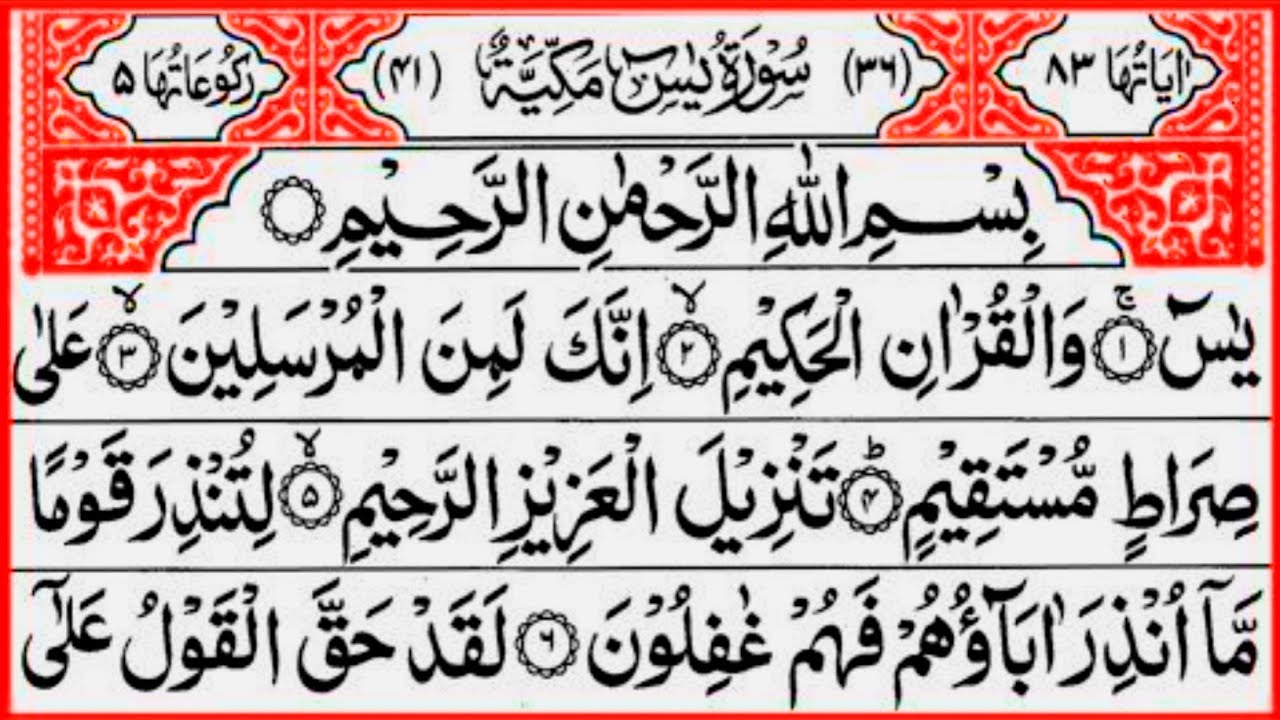 اٰيَاتُهَا ٨٣ (٣٦) سُوْرَةُ يٰسٓ مَكِّيَّةٌ (٤١) رُكُوْعَاتُهَا ۵
بِسْمِ اللّٰهِ الرَّحْمٰنِ الرَّحِيْمِ
يٰسٓ ۚ﴿۱﴾ وَالْقُرْاٰنِ الْحَكِيْمِ ۙ﴿۲﴾ اِنَّكَ لَمِنَ الْمُرْسَلِيْنَ ۙ﴿۳﴾ عَلٰى
صِرَاطٍ مُّسْتَقِيْمٍ ؕ﴿۴﴾ تَنْزِيْلَ الْعَزِيْزِ الرَّحِيْمِ ۙ﴿۵﴾ لِتُنْذِرَ قَوْمًا
مَّاۤ اُنْذِرَ اٰبَآؤُهُمْ فَهُمْ غٰفِلُوْنَ ﴿۶﴾ لَقَدْ حَقَّ الْقَوْلُ عَلٰٓى